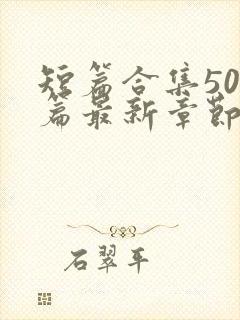 短篇合集50
篇最新章節
石翠平